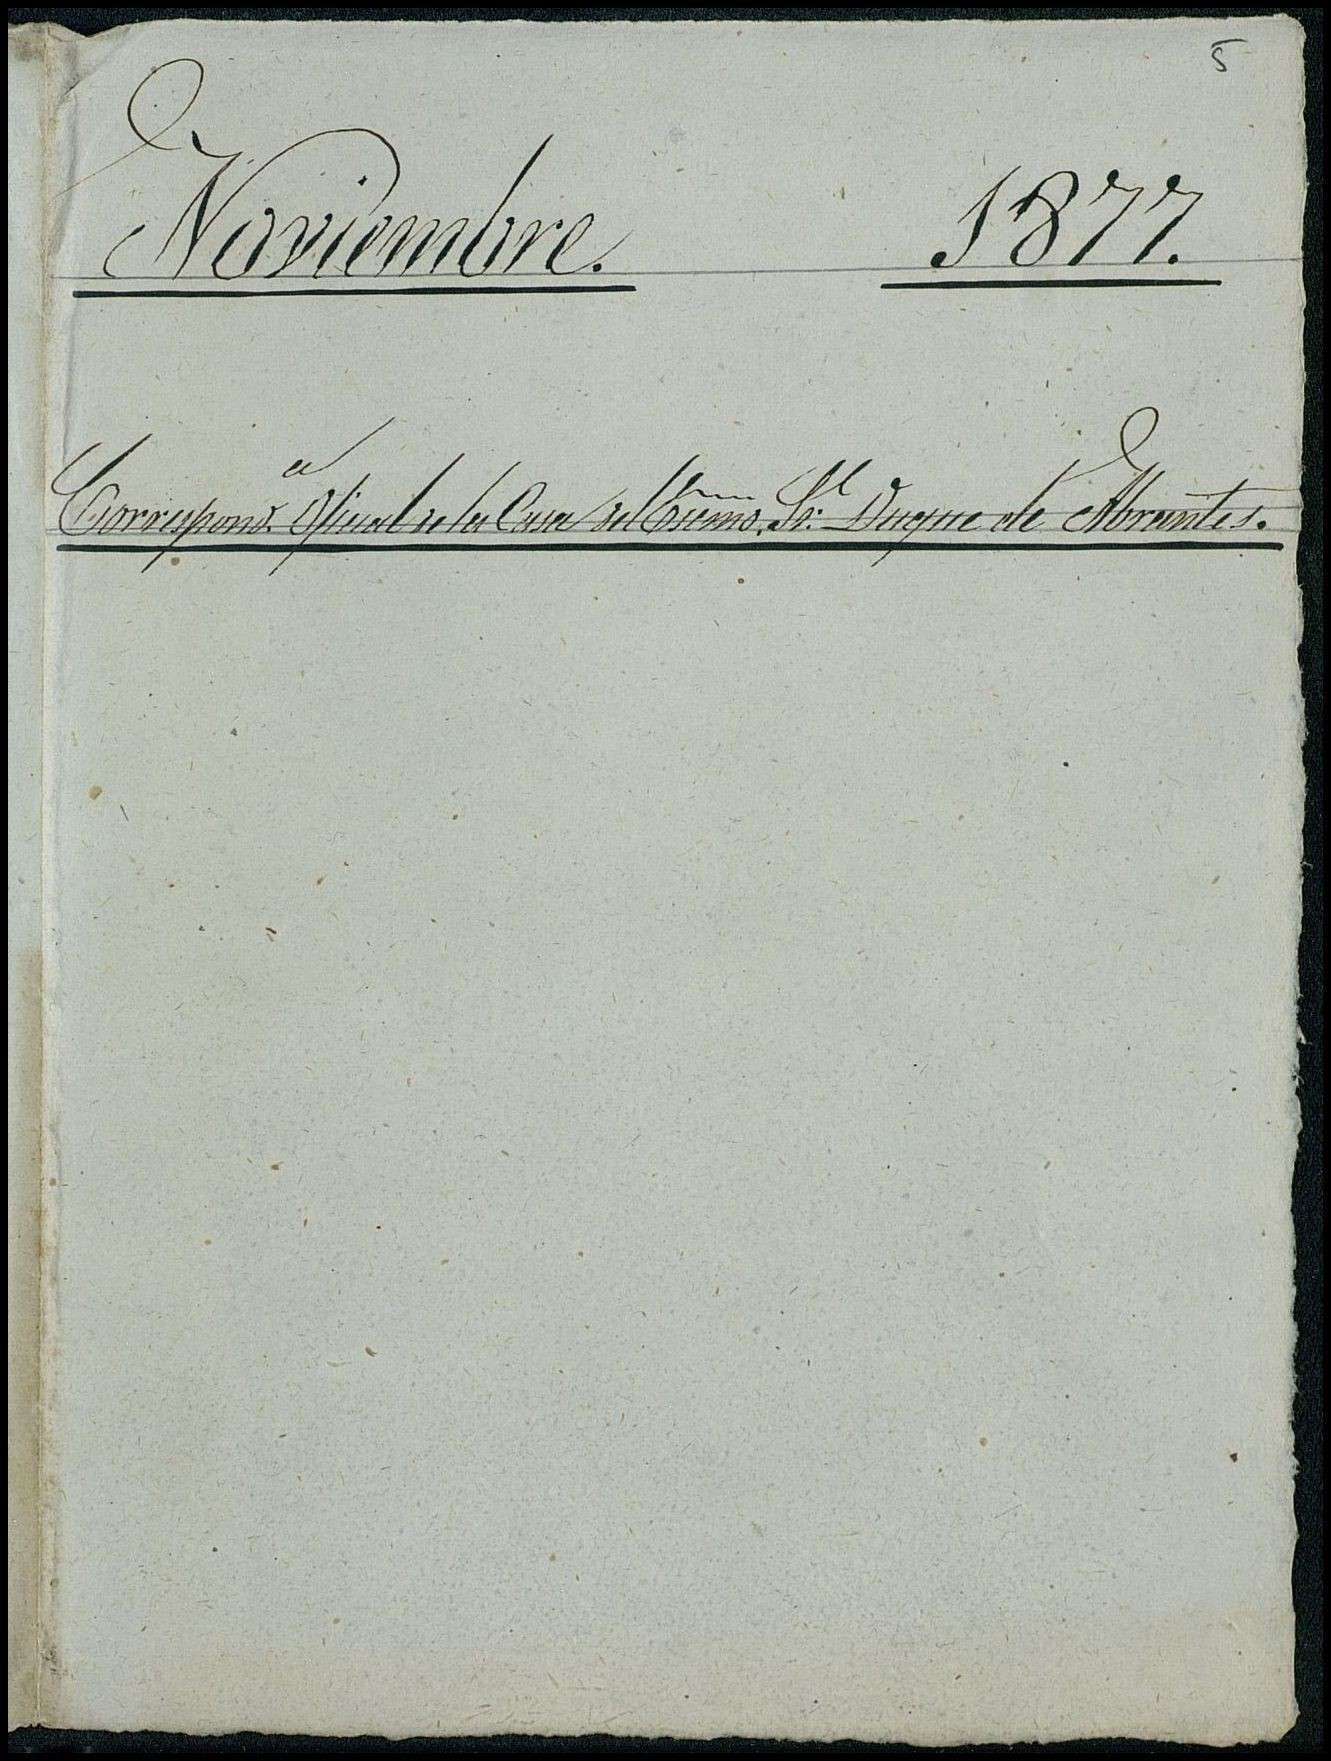 5
Noviembre. 1877.
Correspond.ª Oficial de la Casa del Exmo. Sr. Duque de Abrantes.